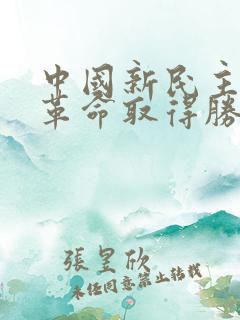 中國新民主
革命取得勝
張昱欣
未經同意禁止轉載